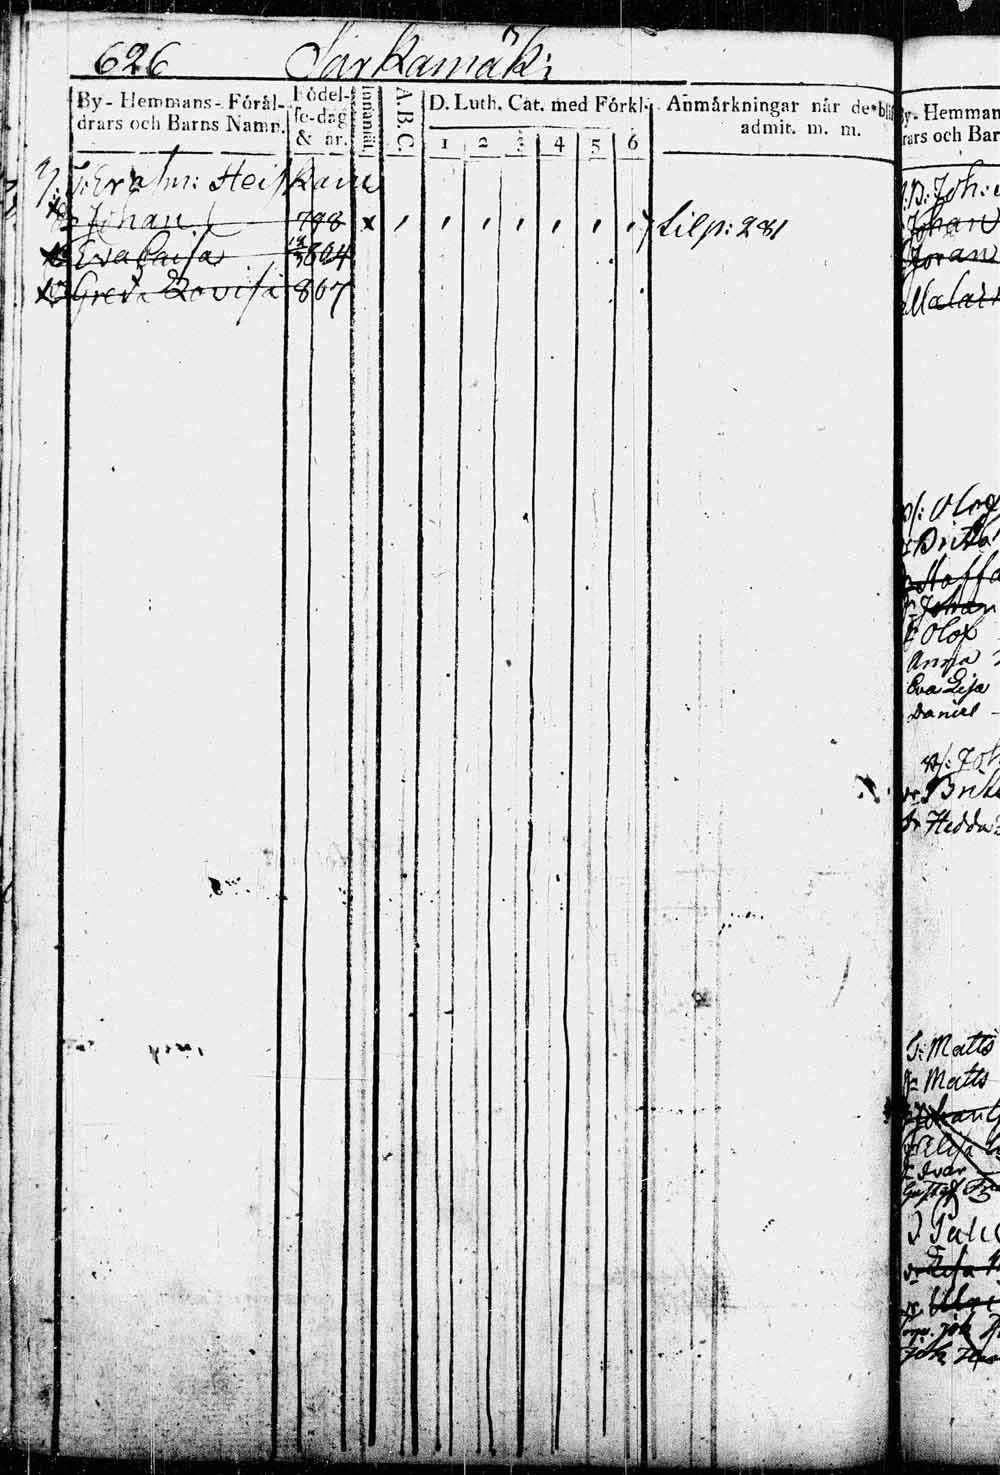 626 Särkamäki
By- Hemmans- Föräl-
drars och Barns Namn.
Födel-
se-dag
& år.
Innanläs.
A.B.C.
D. Luth. Cat. med Förkl.
1 2 3 4 5 6
Anmärkningar når de bli
admit. m. m.
Heiskain
Johan 798 x til p: 281
Eva Caisa 804
Greta Lovisa 807
By- Hemman
drars och Bar
Joh:
Johan
Göran
Olof
Brita
Staffa
Johan
Olof
Anna
Eva Lisa
Daniel
Joh
Brita
Hedda
G: Matts
Matts
Johan G
Ivar
Gustaf
Lisa
Ulri
Joh